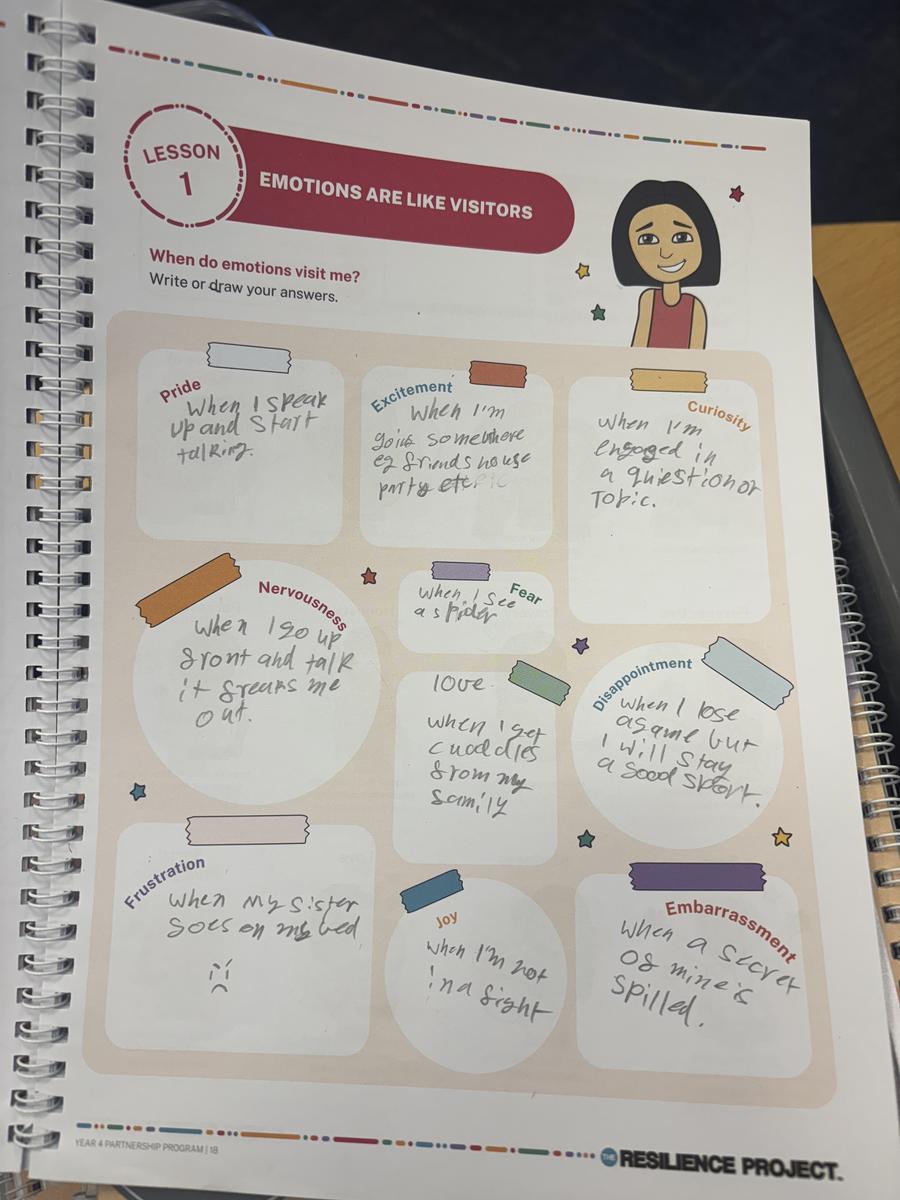 LESSON
1
EMOTIONS ARE LIKE VISITORS
When do emotions visit me?
Write or draw your answers.
Pride
When I speak
up and start
talking.
Excitement
When I'm
going somewhere
eg friends house
party etc
Curiosity
When I'm
engaged in
a quiestion or
Topic.
Nervousness
When I go up
front and talk
it freaks me
out.
Fear
When I see
a spider
love
When I get
cuddles
from my
family
Disappointment
When I lose
a game but
I will stay
a good sport.
Frustration
When my sister
goes on my bed
Joy
When I'm not
in a fight
Embarrassment
When a secret
of mine is
spilled.
YEAR 4 PARTNERSHIP PROGRAM | 18
THE RESILIENCE PROJECT.